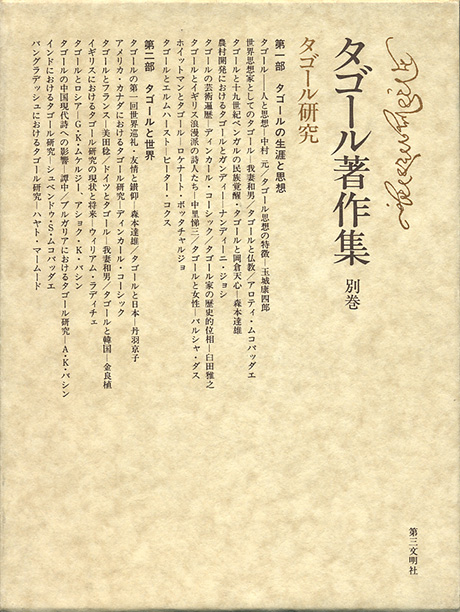 タゴール著作集 別巻
タゴール研究
第一部 タゴールの生涯と思想
タゴール―人と思想―中村 元／タゴール思想の特徴―玉城康四郎
世界思想家としてのタゴール―我妻和男／タゴールと仏教／アロティ・ムコパッダエ
タゴールと十九世紀ベンガルの民族覚醒・タゴールと岡倉天心―森本達雄
農村開発におけるタゴールとガンディー―ナンディーニ・ジョシ
タゴールの芸術遍歴―ディンカール・コーシック／タゴール家の歴史的位相―臼田雅之
タゴールとイギリス浪漫派の詩人たち―中里悌三／タゴールと女性―バルシャ・ダス
ホイットマンとタゴール―ロケナート・ボッタチャルジョ
タゴールとエルムハースト―ピーター・コクス
第二部 タゴールと世界
タゴールの第一回世界巡礼・友情と鑚仰―森本達雄／タゴールと日本―丹羽京子
アメリカ・カナダにおけるタゴール研究―ディンカール・コーシック
タゴールとフランス―美田稔／ドイツとタゴール―我妻和男／タゴールと韓国―金良植
イギリスにおけるタゴール研究の現状と将来―ウィリアム・ラディチェ
タゴールとロシア―G・K・ムケルジー、アショク・K・バシン
タゴールの中国現代詩への影響 譚中／ブルガリアにおけるタゴール研究―A・K・バシン
インドにおけるタゴール研究―シュベンドゥ・S・ムコパッダエ
バングラデッシュにおけるタゴール研究―ハヤト・マームード
第三文明社